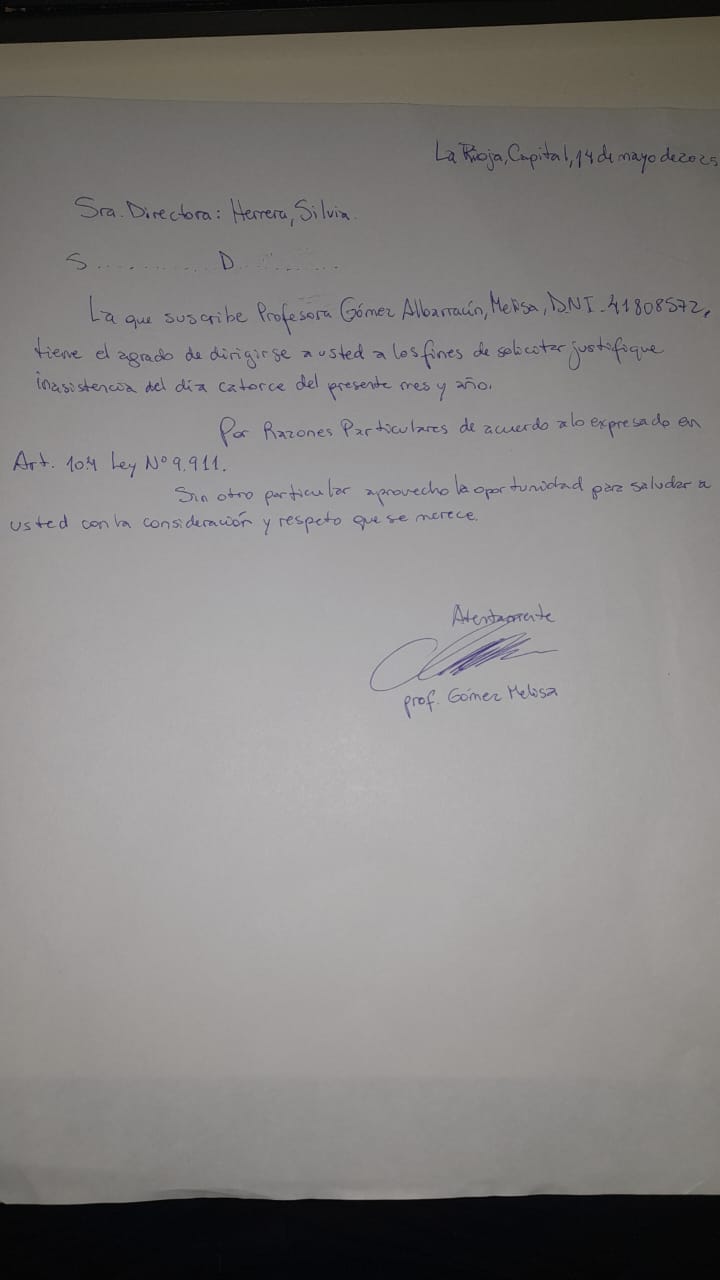 La Rioja, Capital, 14 de mayo de 2025
Sra. Directora: Herrera, Silvia.
S............D..............
La que suscribe Profesora Gómez Albarracín, Melisa, DNI. 41808572,
tiene el agrado de dirigirse a usted a los fines de solicitar justifique
inasistencia del día catorce del presente mes y año.
Por Razones Particulares de acuerdo a lo expresado en
Art. 104 Ley Nº 9.911.
Sin otro particular aprovecho la oportunidad para saludar a
usted con la consideración y respeto que se merece.
Atentamente
prof. Gómez Melisa